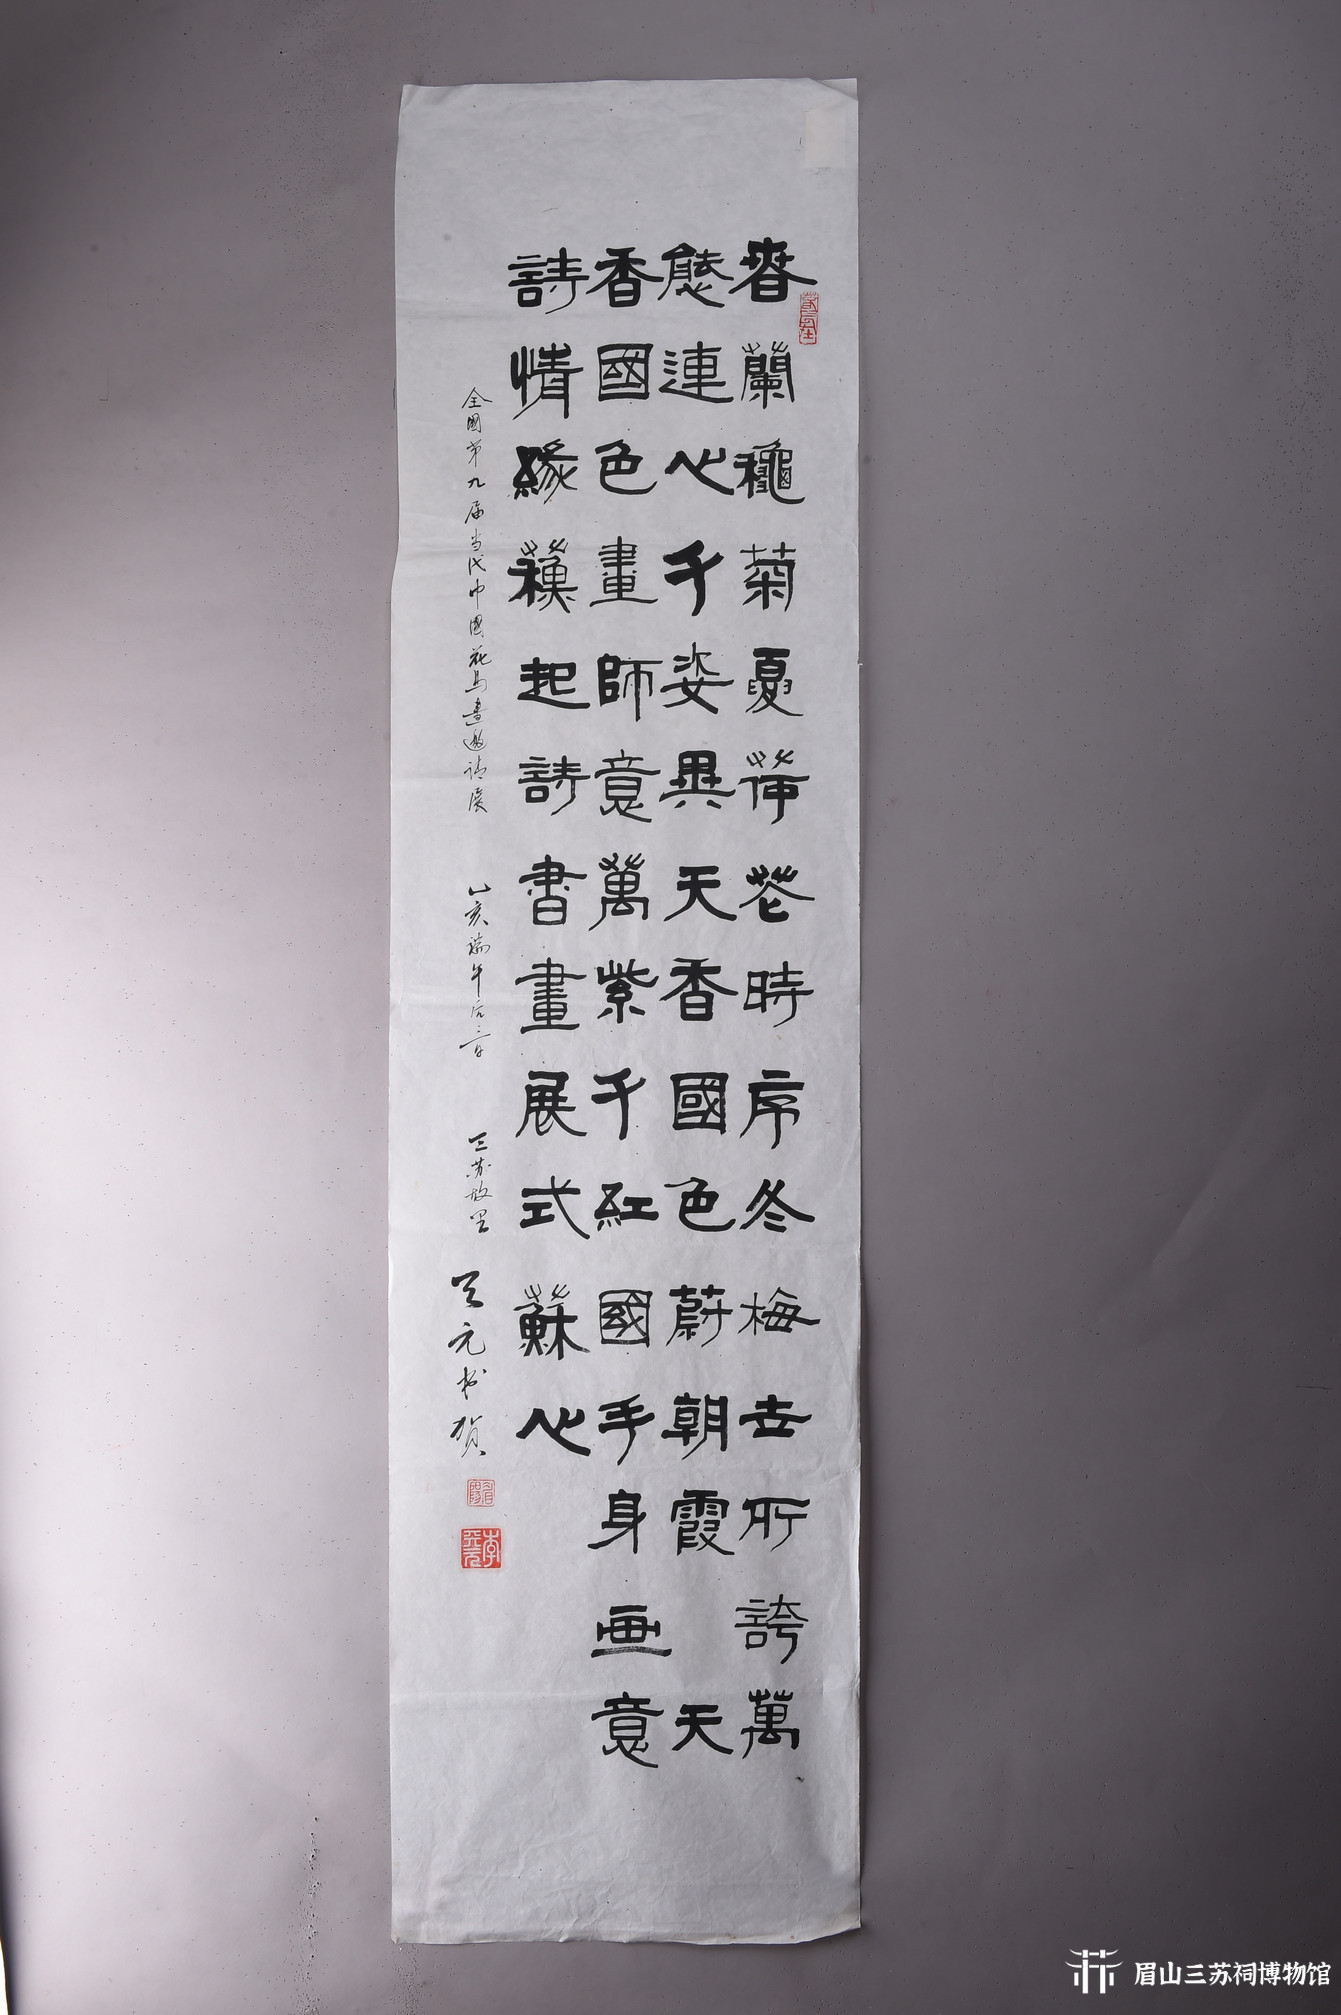 春蘭龝菊夏荷花時序冬梅去所誇萬
態連心千姿異天香國色蔚朝霞天
香國色畫師意萬紫千紅國手身画意
詩情緣蘓起詩書畫展式蘇心
全國第九届当代中國花鸟畫邀请展 乙亥端午后三日 三苏故里 元书贺
眉山三苏祠博物馆